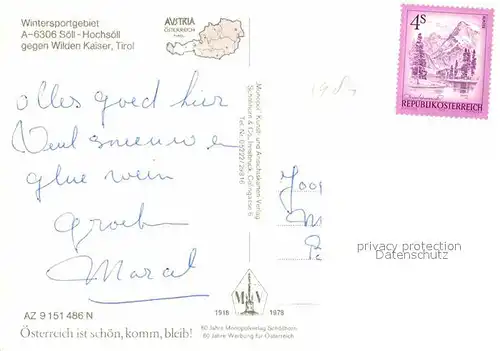 Wintersportgebiet
A-6306 Söll - Hochsöll
gegen Wilden Kaiser, Tirol
AUSTRIA
ÖSTERREICH
TIROL
4S
REPUBLIK ÖSTERREICH
alles goed hier
Veul sneeuw en
glue wein
groeten
Marcel
"Monopol" Kunst- und Ansichtskarten Verlag
Schöllhorn & Co., Innsbruck, Colingasse 6
Tel. Nr. 05222/29816
Joop
M
privacy protection
Datenschutz
1918 1978
AZ 9 151 486 N
Österreich ist schön, komm, bleib!
60 Jahre Monopolverlag Schöllhorn
60 Jahre Werbung für Österreich